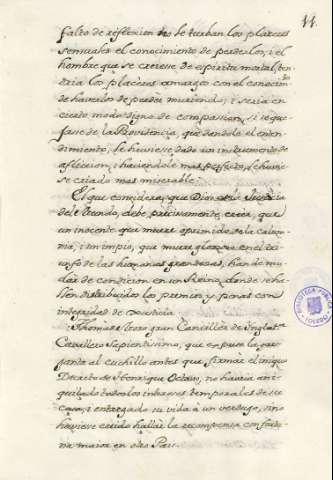 11.
falto de reflexion no le turban los placeres
sensuales el conocimiento de perderlos, i el
hombre que se creiese de espiritu mortal, ten
dria los placeres amargos con el conocim.to
de haverlos de perder muriendo, i seria en
cierto modo digno de compassion, si se que
jase de la Providencia, que dandole el enten
dimiento, le huviese dado un instrumento de
afliccion, i haciendole mas perfecto, le huvie
se criado mas miserable.
El que considera, que Dios es la Justicia
del Mundo, debe precisamente, creer, que
un inocente que muere oprimido de la calum
nia, i un impio, que muere glorioso en el tri
unfo de las humanas grandezas, han de mu
dar de condicion en un Reino, donde se ha
llen distribuidos los premios, y penas con
integridad de Justicia.
Thomas Moro gran Canciller de Inglat.a
Cavallero sapientissimo, que expuso la gar
ganta al cuchillo antes que firmar el iniquo
Decreto de Henrique Octavo, no havria ani
quilado todos los intereses temporales de su
casa, i entregado su vida à un verdugo, si no
huviese creido hallar la recompensa con fortu
na maior en otro Pais.
BIBLIOTECA
TOLEDO